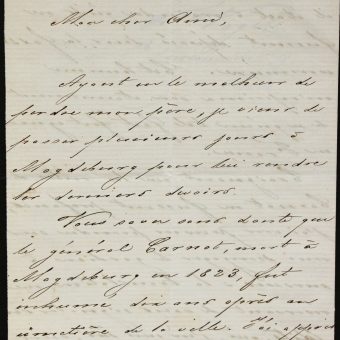 Mon cher Ami,
Ayant eu le malheur de
perdre mon père, je viens de
passer plusieurs jours à
Magdeburg pour lui rendre
les derniers devoirs.
Vous savez sans doute que
le général Carnot, mort à
Magdeburg en 1823, fut
inhumé dix ans après au
cimetière de la ville. J'ai appris